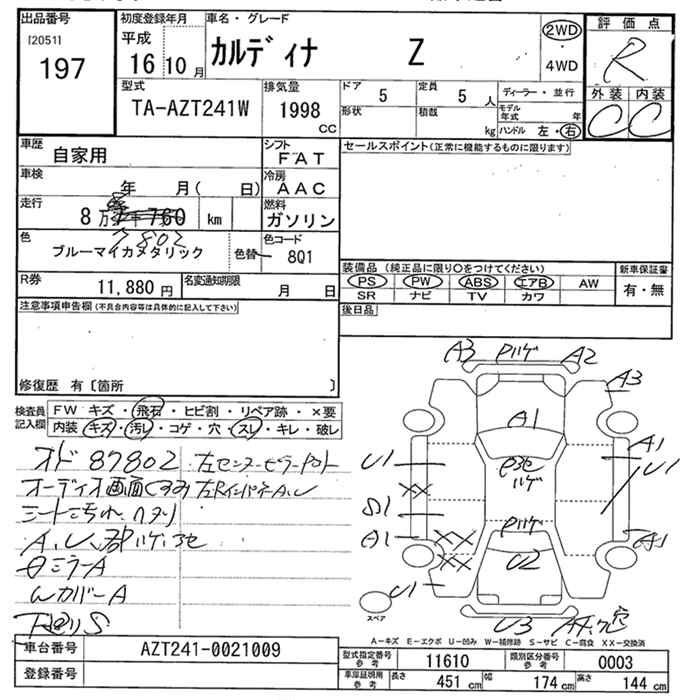 出品番号 初度登録年月 車名・グレード 評価点
[2051] 平成 カルディナ Z 2WD R
197 16 10月 ・ 4WD 外装 内装
型式 排気量 ドア 5 定員 5人 ディーラー・並行 C C
TA-AZT241W 1998 cc 形状 積載 kg モデル年式 年
ハンドル 左・右
車歴 自家用 シフト FAT セールスポイント(正常に機能するものに限ります)
車検 年 月( 日) 冷房 AAC
走行 8万 千 760 km 燃料 ガソリン
7802
色 ブルーマイカメタリック 色替 色コード 8Q1
装備品(純正品に限り○をつけてください) 新車保証書
R券 11,880円 名変通知期限 月 日 PS PW ABS エアB AW 有・無
SR ナビ TV カワ
注意事項申告欄(不具合内容等は具体的に記入して下さい) 後日品
修復歴 有〔箇所 〕
検査員記入欄 FW キズ・飛石・ヒビ割・リペア跡・×要
内装 キズ・汚レ・コゲ・穴・スレ・キレ・破レ
オド 87802 左センターピラー
オーディオ画面
シート汚れ
A、U、
ミラーA
WカバーA
A3 ハゲ A2
A3
A1
U1 A1 U1
ハゲ
XX
S1
A1 XX ハゲ A1
XX U2
U1
U3
スペア
A-キズ E-エクボ U-凹み W-補修跡 S-サビ C-腐食 XX-交換済
車台番号 AZT241-0021009
型式指定番号 参考 11610 類別区分番号 参考 0003
登録番号
車庫証明用 参考 長さ 451 cm 幅 174 cm 高さ 144 cm